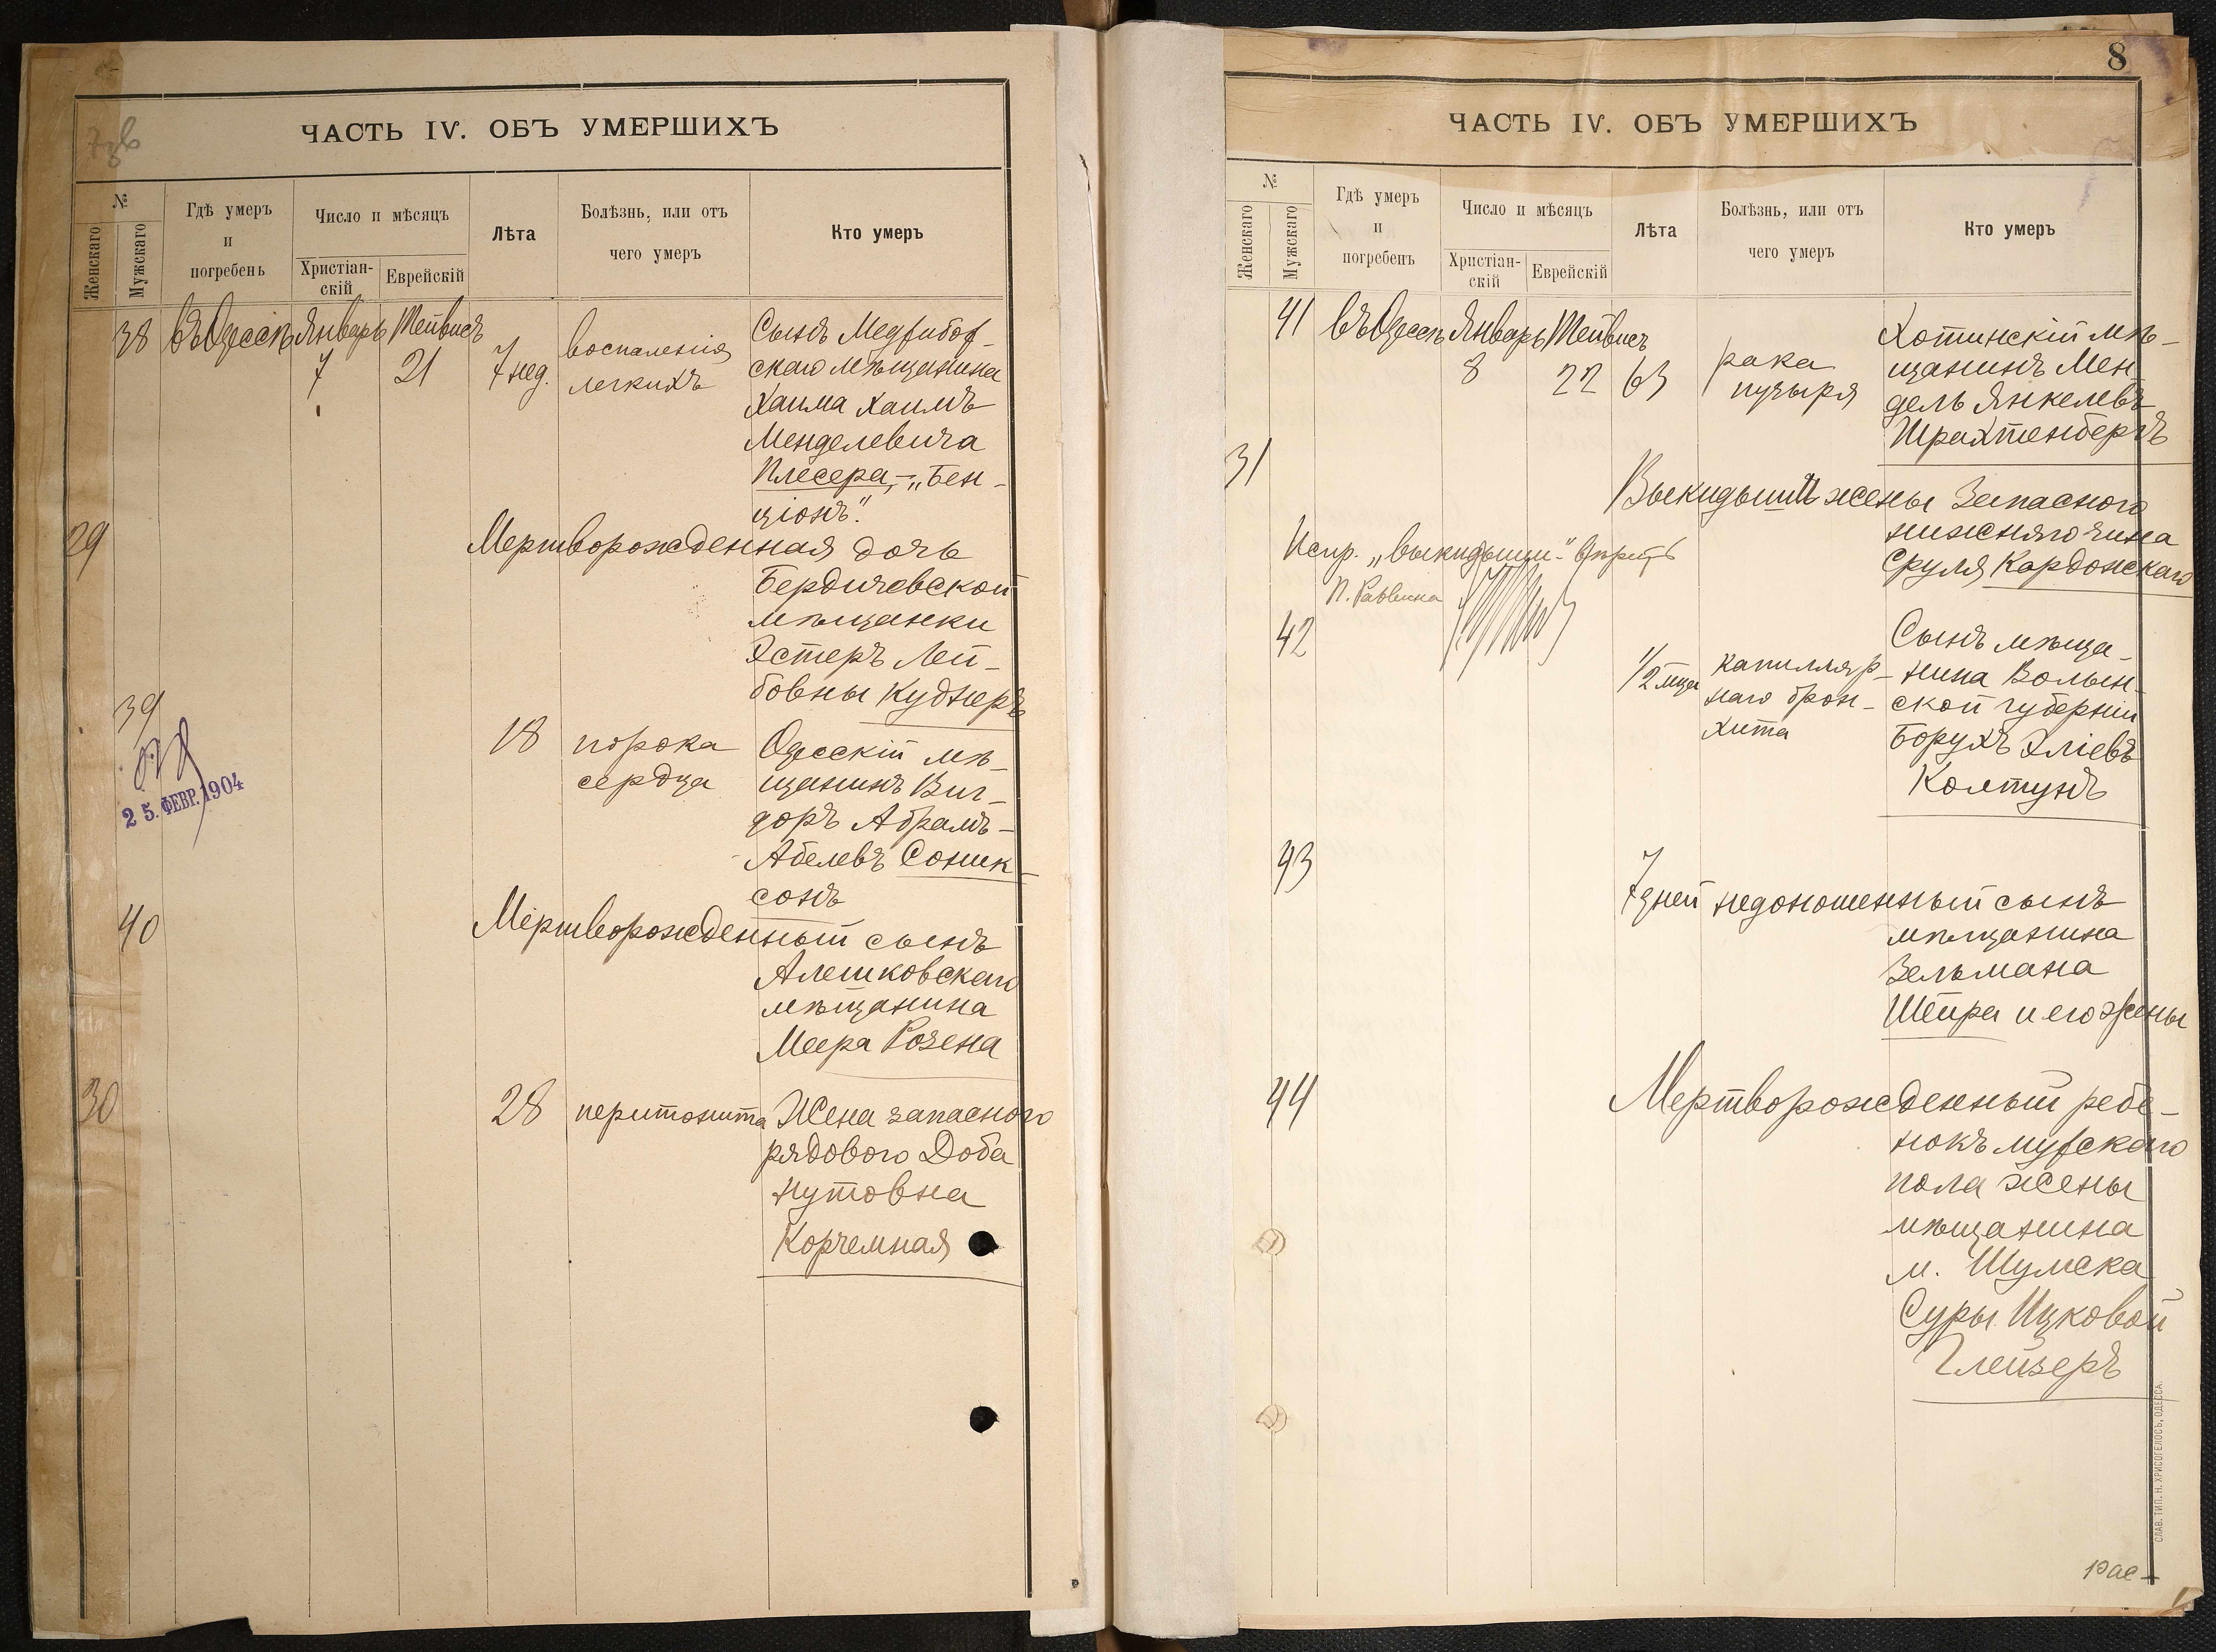 ЧАСТЬ IV. ОБЪ УМЕРШИХЪ
№
Женскаго
Мужскаго
Гдѣ умеръ
и
погребенъ
Число и мѣсяцъ
Христіан-
скій
Еврейскій
Лѣта
Болѣзнь, или отъ
чего умеръ
Кто умеръ
38 въ Одессѣ Январь Тейвисъ
7 21 7 нед.
воспаленія
легкихъ
Сынъ Меджибож-
скаго мѣщанина
Хаима Хаимъ
Менделевича
Плесера, - „Бен-
ціонъ".
29
Мертворожденная дочь
Бердичевской
мѣщанки
Эстеръ Лей-
бовны Куднеръ
39
25. ФЕВР. 1904
18 порока
сердца
Одесскій мѣ-
щанинъ Виг-
доръ Абрамъ-
Абелевъ Соник-
сонъ
40
Мертворожденный сынъ
Алешковскаго
мѣщанина
Меера Розена
30
28 перитонита Жена запасного
рядового Доба
Нутовна
Корчемная
8
ЧАСТЬ IV. ОБЪ УМЕРШИХЪ
№
Женскаго
Мужскаго
Гдѣ умеръ
и
погребенъ
Число и мѣсяцъ
Христіан-
скій
Еврейскій
Лѣта
Болѣзнь, или отъ
чего умеръ
Кто умеръ
41 въ Одессѣ Январь Тейвисъ
8 22 63
рака
пузыря
Хотинскій мѣ-
щанинъ Мен
дель Янкелевъ
Трахтенбергъ
31
Выкидышъ жены Запасного
нижняго чина
Сруля Кардонскаго
Испр. „выкидышъ" вѣрить
П. Раввина
42
1/2 мца
капилляр-
наго брон-
хита
Сынъ мѣща-
нина Волын-
ской губерніи
Борухъ Эліевъ
Колтунъ
43
7 дней недоношенный сынъ
мѣщанина
Зельмана
Шейра и его жены
44
Мертворожденный ребе-
нокъ мужского
пола жены
мѣщанина
м. Шумска
Суры Ицковой
Глейзеръ
СЛАВ. ТИП. Н. ХРИСОГЕЛОСЪ, ОДЕССА.